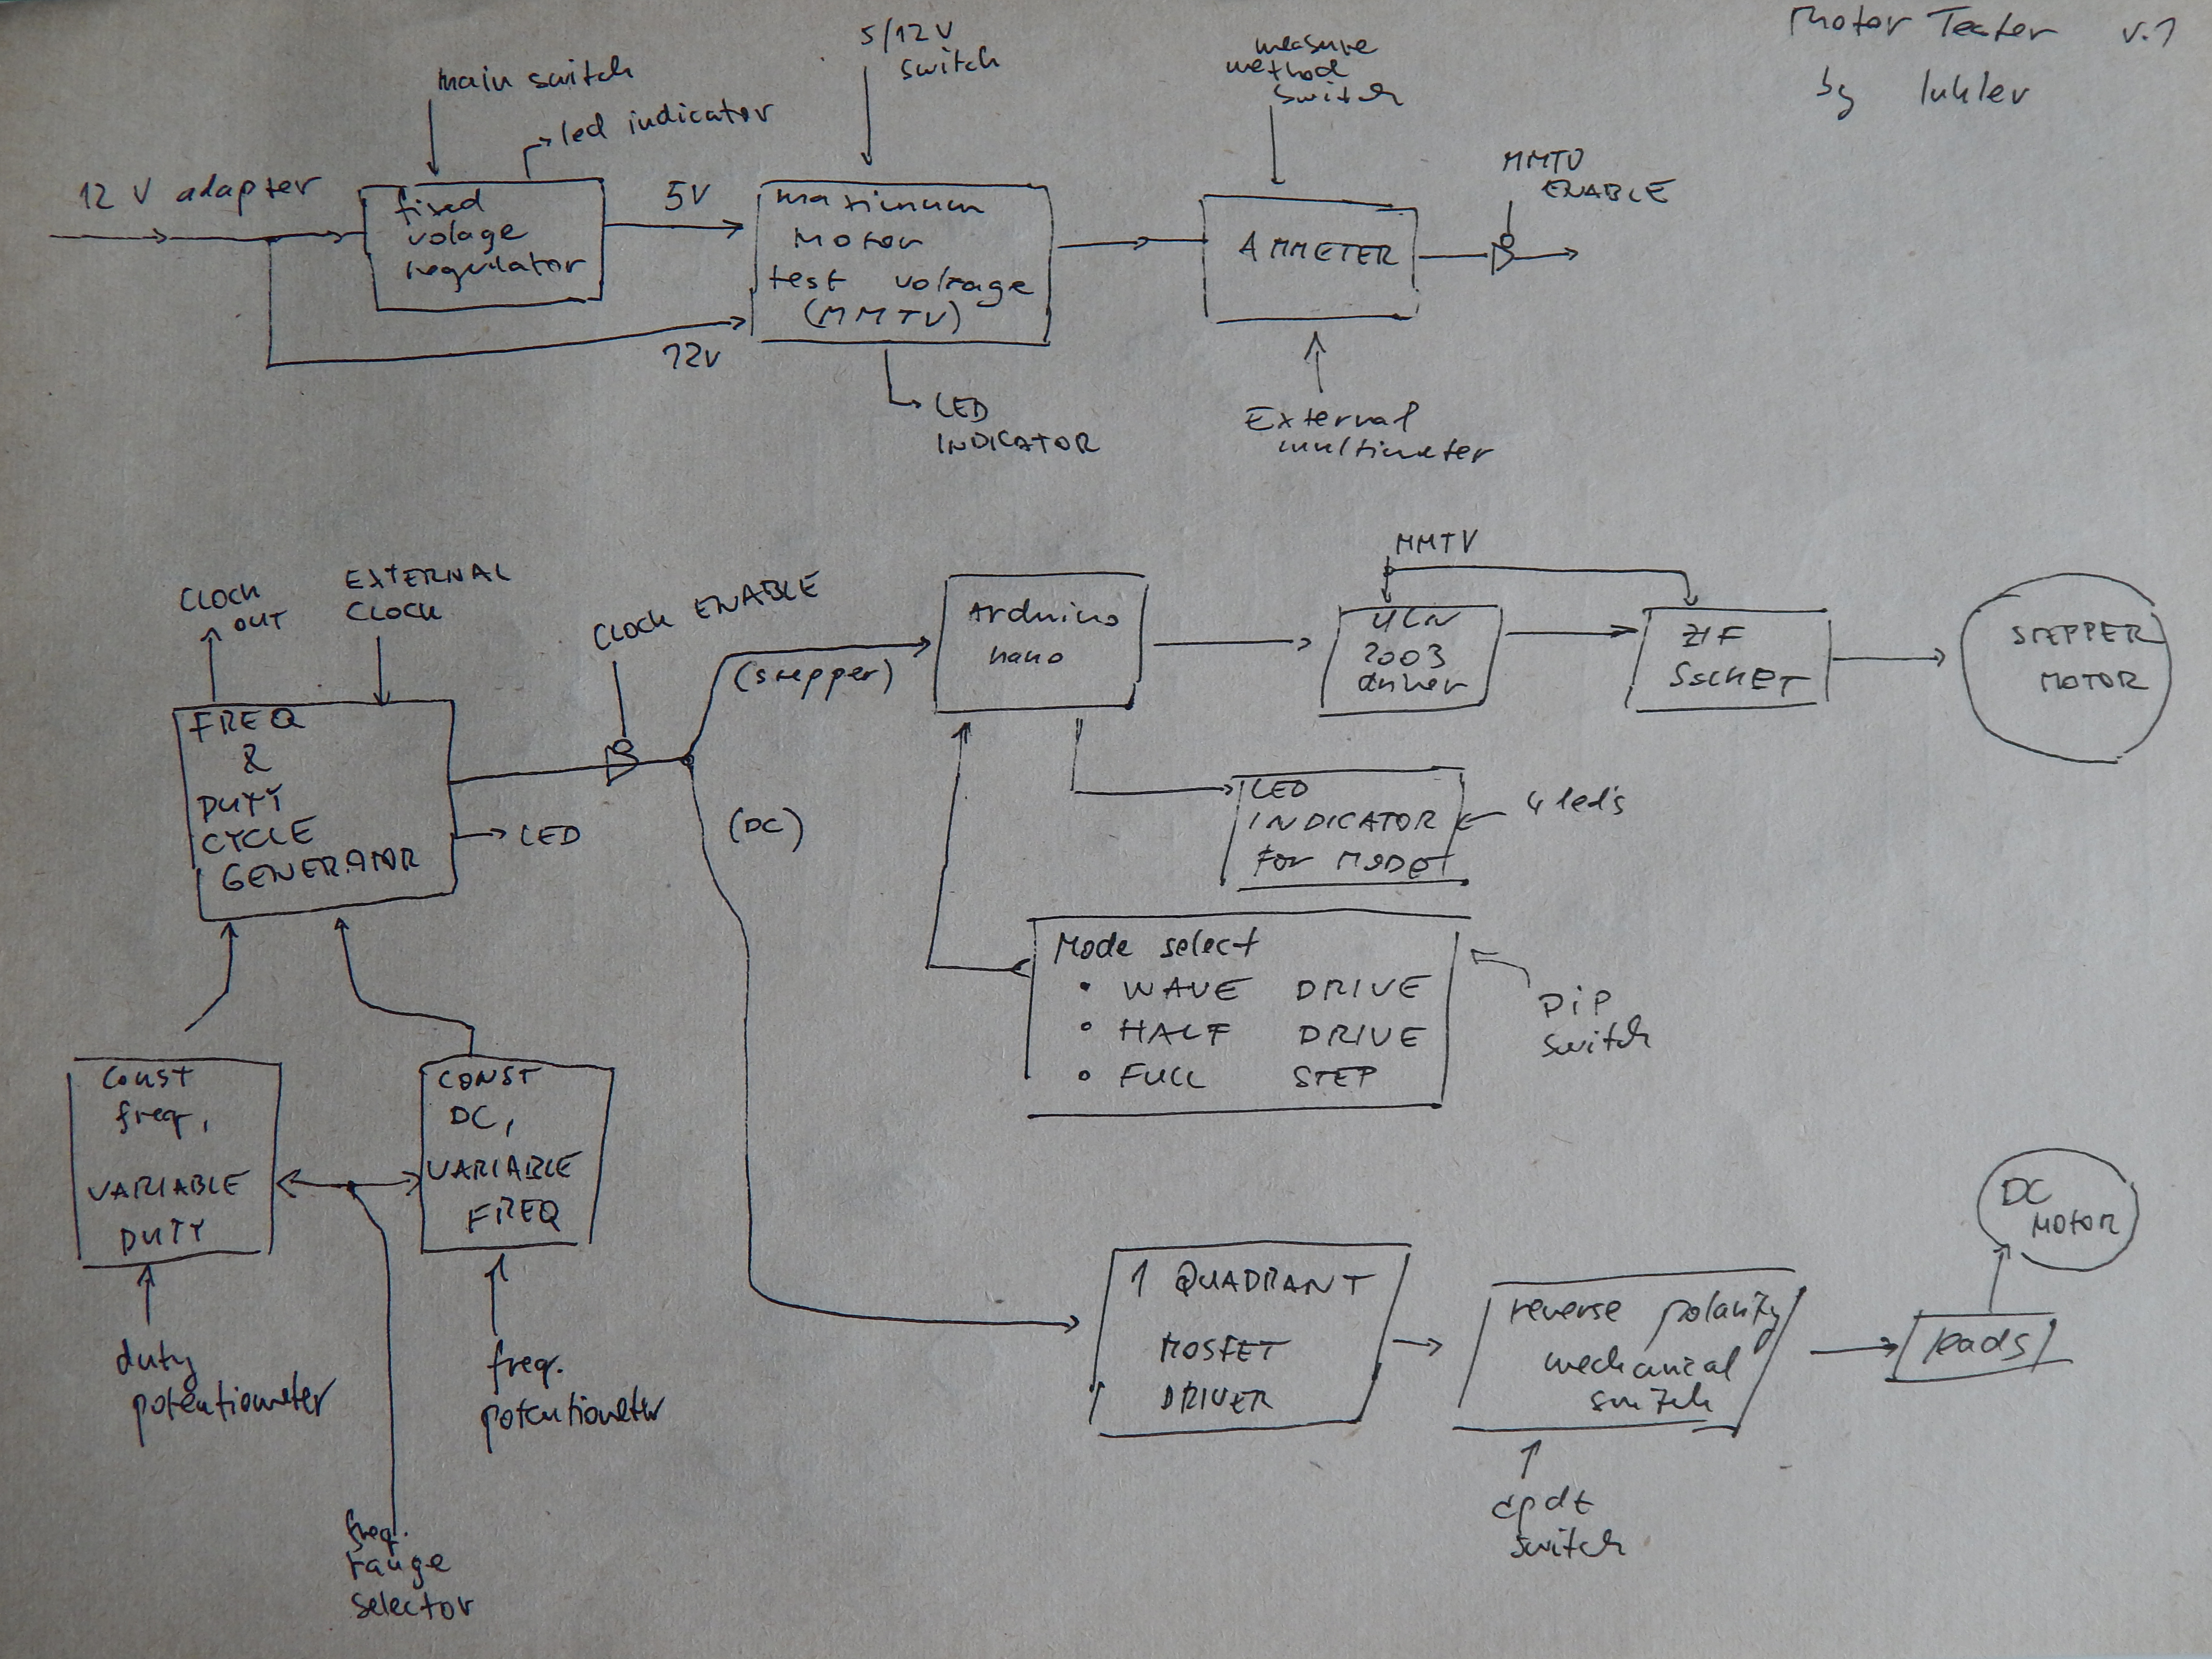 Motor Tester v.1
by luhler
main switch
led indicator
5/12V
switch
measure
method
switch
12 V adapter
fixed
volage
regulator
5V
12V
maximum
Motor
test voltage
(MMTV)
LED
INDICATOR
AMMETER
External
multimeter
MMTV
ENABLE
CLOCK
OUT
EXTERNAL
CLOCK
FREQ
&
DUTY
CYCLE
GENERATOR
LED
CLOCK ENABLE
(stepper)
(DC)
Arduino
nano
MMTV
ULN
2003
driver
ZIF
SOCKET
STEPPER
MOTOR
LED
INDICATOR
For MODE
4 led's
Mode select
• WAVE DRIVE
• HALF DRIVE
• FULL STEP
DiP
switch
const
freq,
VARIABLE
DUTY
CONST
DC,
VARIABLE
FREQ
duty
potentiometer
freq.
potentiometer
freq.
range
selector
1 QUADRANT
MOSFET
DRIVER
reverse polarity
mechanical
switch
dpdt
switch
leads
DC
MOTOR